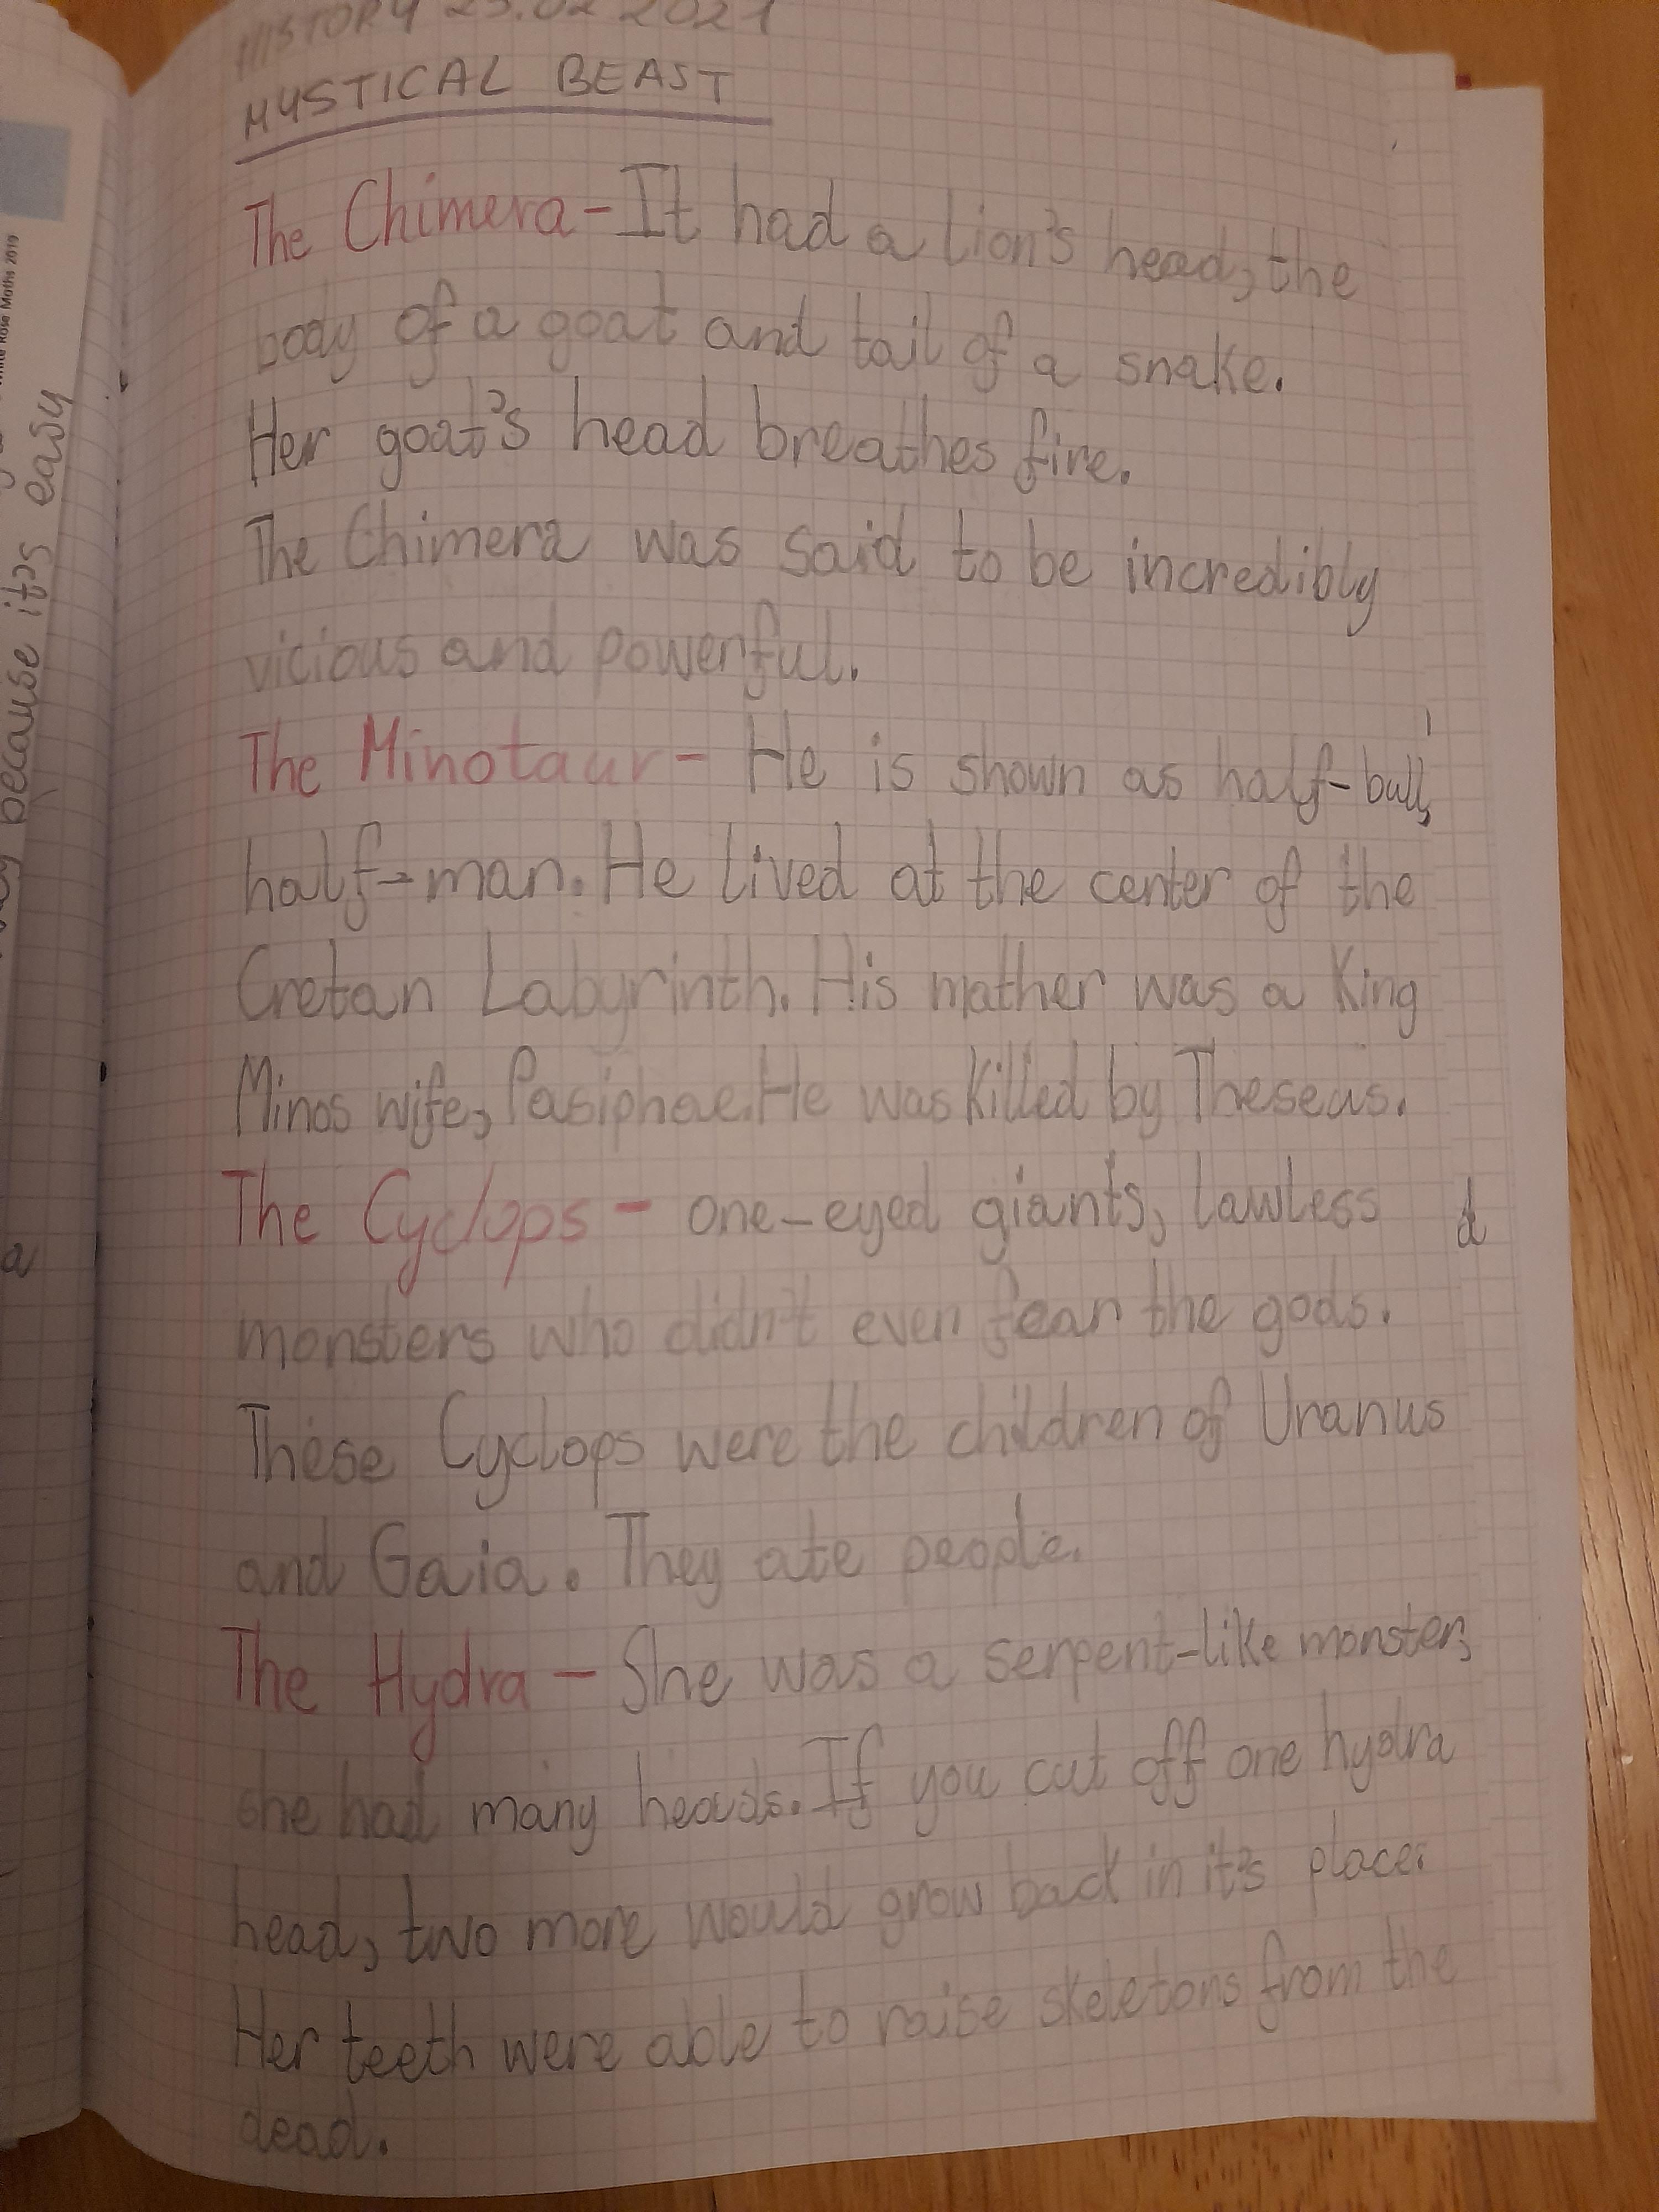 HISTORY 25.02 2021
MYSTICAL BEAST
The Chimera - It had a lion's head, the
body of a goat and tail of a snake.
Her goat's head breathes fire.
The Chimera was said to be incredibly
vicious and powerful.
The Minotaur - He is shown as half-bull,
half-man. He lived at the center of the
Cretan Labyrinth. His mather was a King
Minos wife, Pasiphae. He was killed by Theseus.
The Cyclops - one-eyed giants, lawless
monsters who didn't even fear the gods.
These Cyclops were the children of Uranus
and Gaia. They ate people.
The Hydra - She was a serpent-like monster,
she had many heads. If you cut off one hydra
head, two more would grow back in it's place.
Her teeth were able to raise skeletons from the
dead.
White Rose Maths 2019
because it's easy
a
d